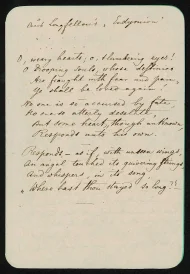 Miss Longfellow's, Endymion
O, weary hearts, o, slumbering eyes!
O drooping souls, whose destinies
Are fraught with fear and pain,
Ye shall be loved again!
No one is so accursed by fate,
No one so utterly desolate,
But some heart, though unknown,
Responds unto his own.
Responds – as if, with unseen wings,
An angel touched its quivering strings,
And whispers, in its song:
"Where hast thou stayed so long?"